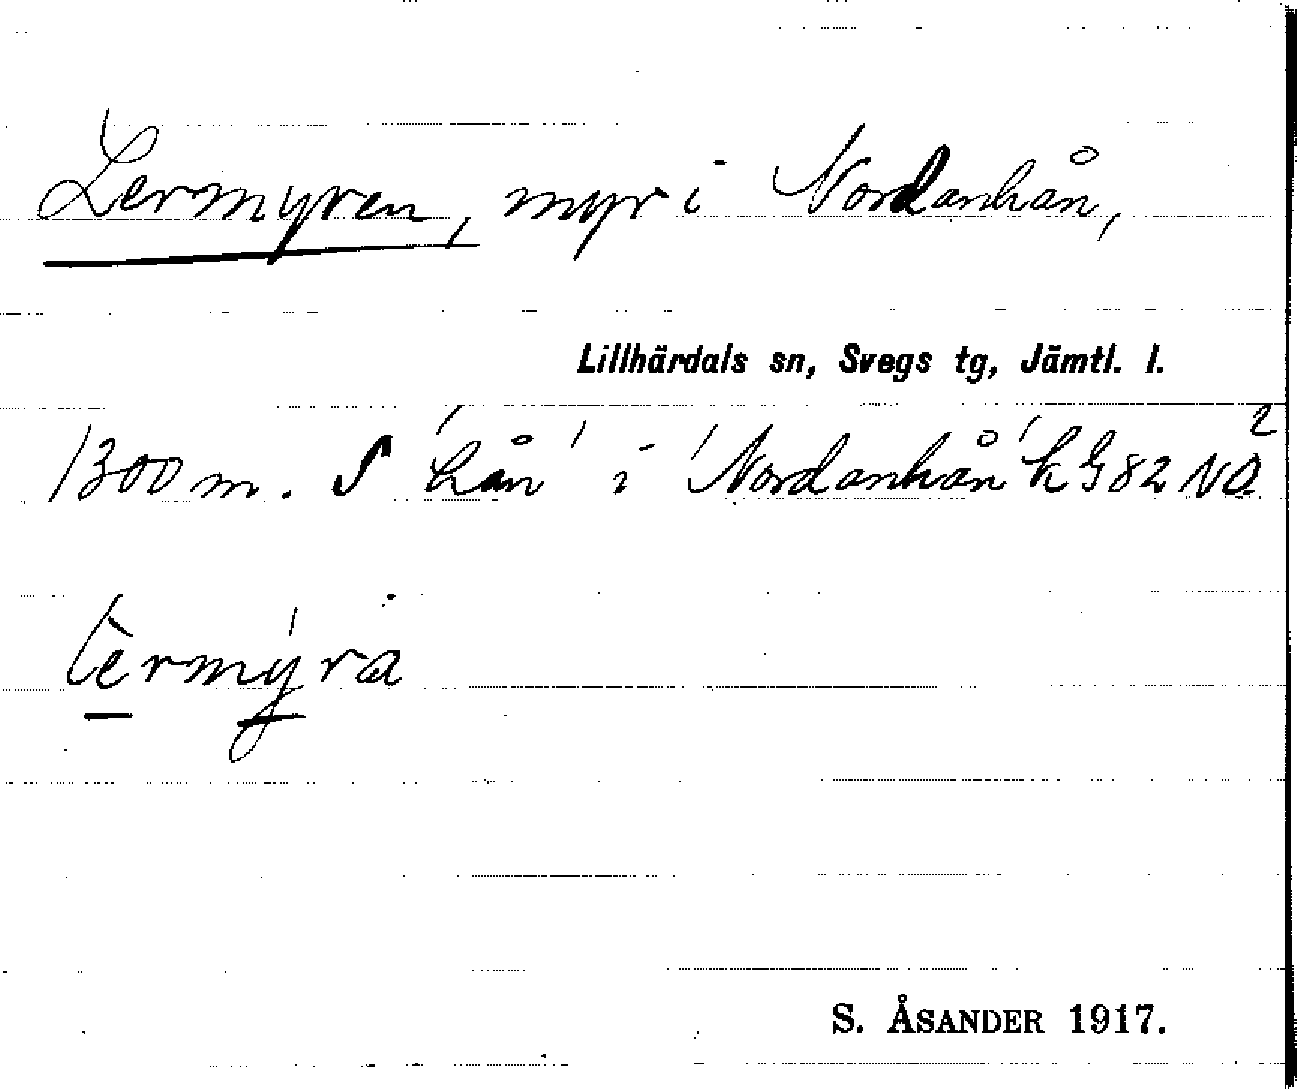 Lermyren, myr i Nordanhån,
Lillhärdals sn, Svegs tg, Jämtl. l.
1300 m. S 'hån' i 'Nordanhån' k G 82 NO²
lèrmýra
S. ÅSANDER 1917.